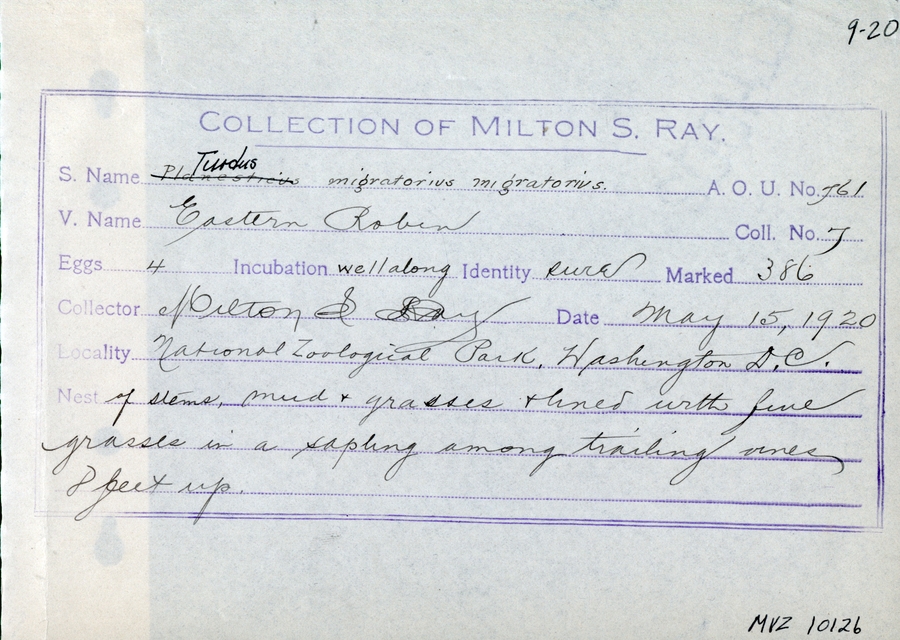 9-20
COLLECTION OF MILTON S. RAY.
Turdus
S. Name Planesticus migratorius migratorius. A. O. U. No. 761
V. Name Eastern Robin Coll. No. 7
Eggs 4 Incubation well along Identity sure Marked 386
Collector Milton S Ray Date May 15, 1920
Locality National Zoological Park, Washington D.C.
Nest of stems, mud + grasses + lined with fine
grasses in a sapling among trailing vines
8 feet up.
MVZ 10126